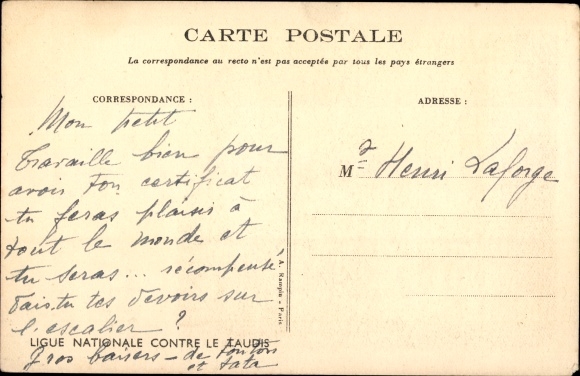 CARTE POSTALE
La correspondance au recto n'est pas acceptée par tous les pays étrangers
CORRESPONDANCE :
Mon petit
Travaille bien pour
avoir ton certificat
tu feras plaisir à
tout le monde et
tu seras... récompensé
Fais-tu tes devoirs sur
l'escalier ?
Gros baisers - de tonton
et tata
LIGUE NATIONALE CONTRE LE TAUDIS
A. Rampin - Paris.
ADRESSE :
Mr Henri Laforge